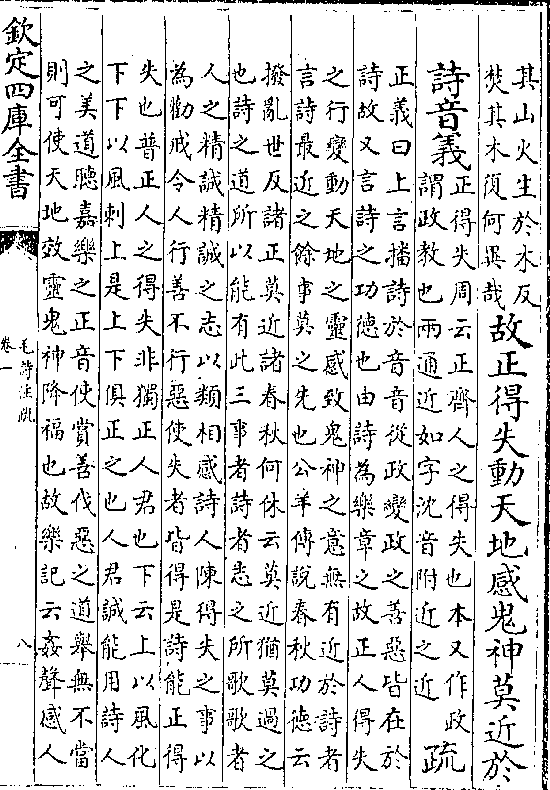 其山火生於木反
焚其木復何異哉
故正得失動天地感鬼神莫近於
詩音義
正得失周云正齊人之得失也本又作政
謂政教也兩通近如字沈音附近之近
疏
正義曰上言播詩於音音從政變政之善惡皆在於
詩故又言詩之功德也由詩為樂章之故正人得失
之行變動天地之靈感致鬼神之意無有近於詩者
言詩最近之餘事莫之先也公羊傳說春秋功德云
撥亂世反諸正莫近諸春秋何休云莫近猶莫過之
也詩之道所以能有此三事者詩者志之所歌歌者
人之精誠精誠之志以類相感詩人陳得失之事以
為勸戒令人行善不行惡使失者皆得是詩能正得
失也普正人之得失非獨正人君也下云上以風化
下下以風刺上是上下俱正之也人君誠能用詩人
之美道聽嘉樂之正音使賞善伐惡之道舉無不當
則可使天地效靈鬼神降福也故樂記云姦聲感人
欽定四庫全書
毛詩注疏
卷一
八